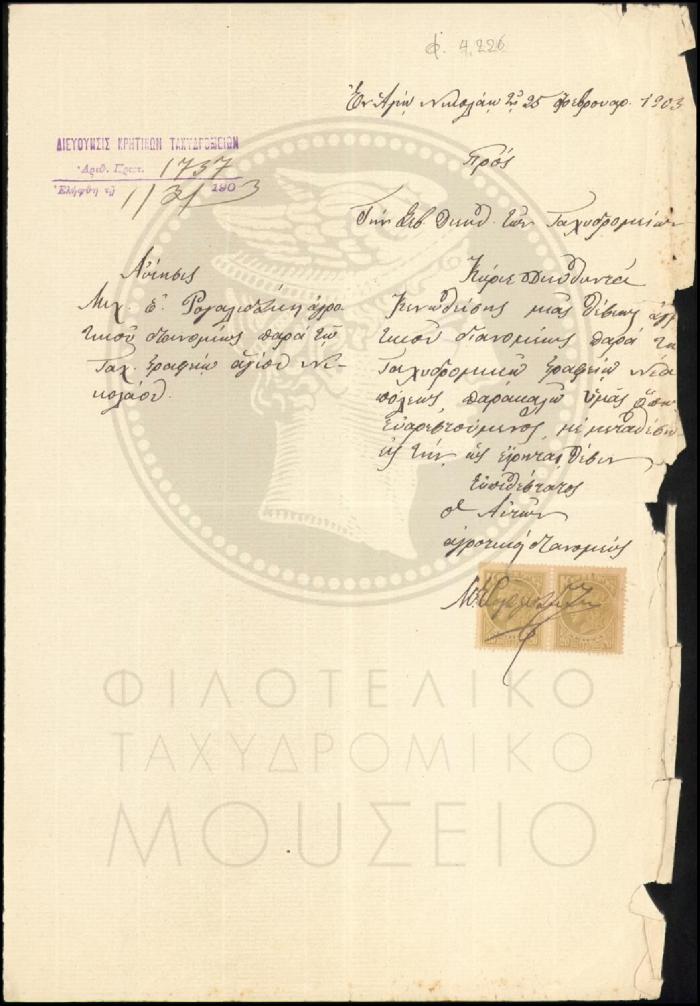 φ. 4.226
Ἐν Ἁγίῳ Νικολάῳ τῇ 25 Φεβρουαρ. 1903
ΔΙΕΥΘΥΝΣΙΣ ΚΡΗΤΙΚΩΝ ΤΑΧΥΔΡΟΜΕΙΩΝ
Ἀριθ. Πρωτ. 1737
Ἐλήφθη τῇ 1/3/ 1903
Πρὸς
Τὴν Σεβ. Διευθ. τῶν Ταχυδρομείων
Αἴτησις
Μιχ. Ε. ἀγρο-
τικοῦ διανομέως παρὰ τῷ
Ταχ. Γραφείῳ Ἁγίου Νι-
κολάου.
Κύριε Διευθυντά
Κενωθείσης μιᾶς θέσεως ἀγρ
τικοῦ διανομέως παρὰ τῷ
Ταχυδρομικῷ Γραφείῳ Νεα
πόλεως, παρακαλῶ ὑμᾶς ὅπως
εὐαρεστούμενος, μὲ μεταθέσητε
εἰς τὴν ὡς εἴρηται θέσιν
Εὐπειθέστατος
ὁ Αἰτῶν
ἀγροτικὸς διανομεὺς
ΦΙΛΟΤΕΛΙΚΟ
ΤΑΧΥΔΡΟΜΙΚΟ
ΜΟΥΣΕΙΟ